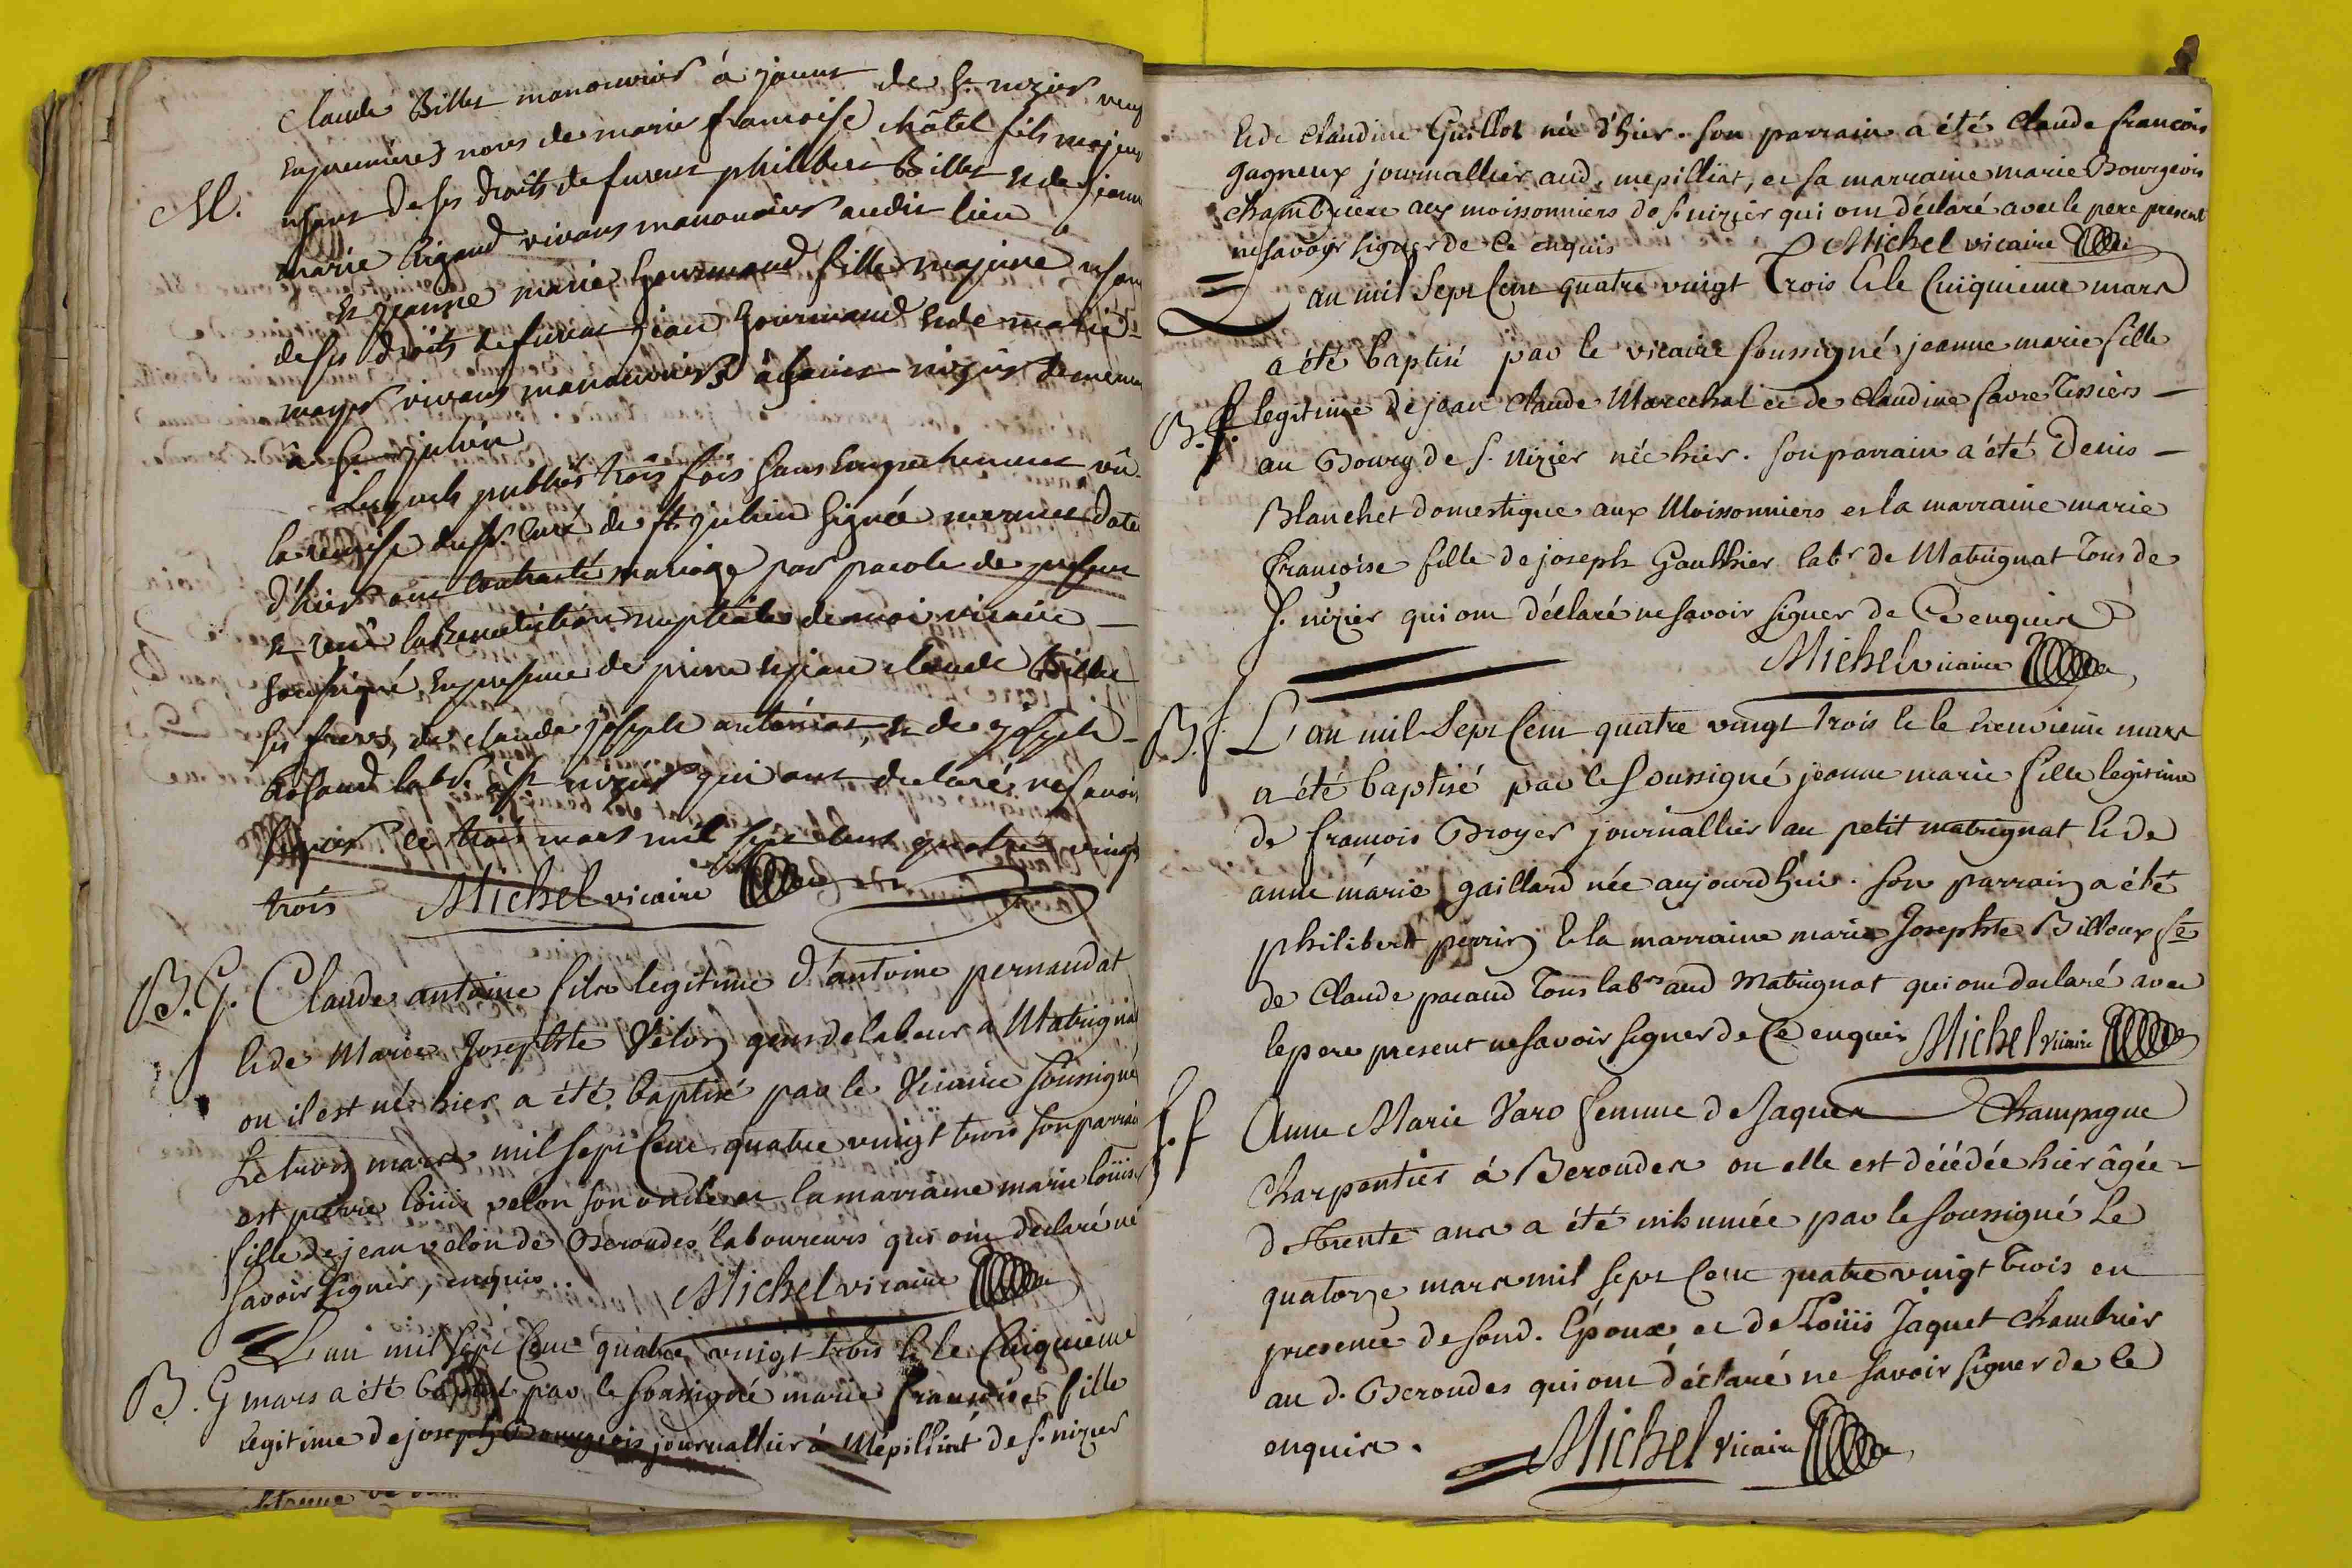 Claude Billet manouvrier à jayat de St. nizier veuf
en premieres noces de marie francoise châtel fils majeur
M.
usant de ses droits de furent philibert Billet et de jeanne
marie Rigaud vivans manouvriers audit lieu
et jeanne marie gourmand fille majeure usant
de ses droits de furent jean gourmand et de marie
mayer vivans manouvriers à saint nizier demeurant
à St. julien
Lesquels publiés trois fois sans empechement vû
la remise du Sr. Curé de St. julien signée mermet date
d'hier ont contracté mariage par parole de present
et reçû la benediction nuptiale de moi vicaire
soussigné, en presence de pierre et jean claude Billet
ses freres, de claude joseph antoniat, et de joseph
labr. à St nizier qui ont declaré ne savoir
signer le trois mars mil sept cent quatre vingt
trois Michel vicaire
B. G. Claude antoine fils legitime d'antoine pernaudat
et de Marie Josephte Velon gens de labeur a Matrignat
ou il est né hier a été baptisé par le Vicaire soussigné
Le trois mars mil sept cent quatre vingt trois son parrain
est pierre louis velon son oncle et la marraine marie louise
fille de jean velon de Beroudes laboureurs qui ont declaré ne
savoir signer, enquis Michel vicaire
L'an mil sept cent quatre vingt trois et le Cinquieme
B. G mars a été baptisé par le soussigné marie francoise fille
legitime de joseph Bourgeois journallier à Mépilliat de s. nizier
et de Claudine Guillot née d'hier. son parrain a été Claude francois
gagneux journallier aud. mepilliat, et sa marraine marie Bourgeois
chambriere aux moissonniers de s. nizier qui ont déclaré avec le pere present
ne savoir signer de ce enquis Michel vicaire
L'an mil Sept Cent quatre vingt Trois et le Cinquieme mars
a été baptisé par le vicaire soussigné jeanne marie fille
B. f. legitime de jean Claude Marechal et de Claudine favre Tissiers
au Bourg de S. Nizier née hier. son parrain a été Denis
Blanchet domestique aux Moissonniers et la marraine marie
françoise fille de joseph Gauthier labr de Matrignat Tous de
S. nizier qui ont déclaré ne savoir signer de Ce enquis
Michel vicaire
B. f. L'an mil Sept Cent quatre vingt trois et le neuvieme mars
a été baptisé par le soussigné jeanne marie fille legitime
de françois Broyer journallier au petit matrignat et de
anne marie gaillard née aujourd'hui. son parrain a été
philibert perrin et la marraine marie Josephte Billoux fe
de Claude pacaud Tous labrs aud Matrignat qui ont declaré avec
le pere present ne savoir signer de Ce enquis Michel Vicaire
S. f Anne Marie Varo femme de Jaques Champagne
Charpentier à Beroudes ou elle est décédée hier âgée
de trente ans a été inhumée par le soussigné Le
quatorze mars mil sept cent quatre vingt trois en
presence de sond. Epoux et de Loüis Jaquet chambrier
au d. Beroudes qui ont déclaré ne savoir signer de ce
enquis. Michel Vicaire